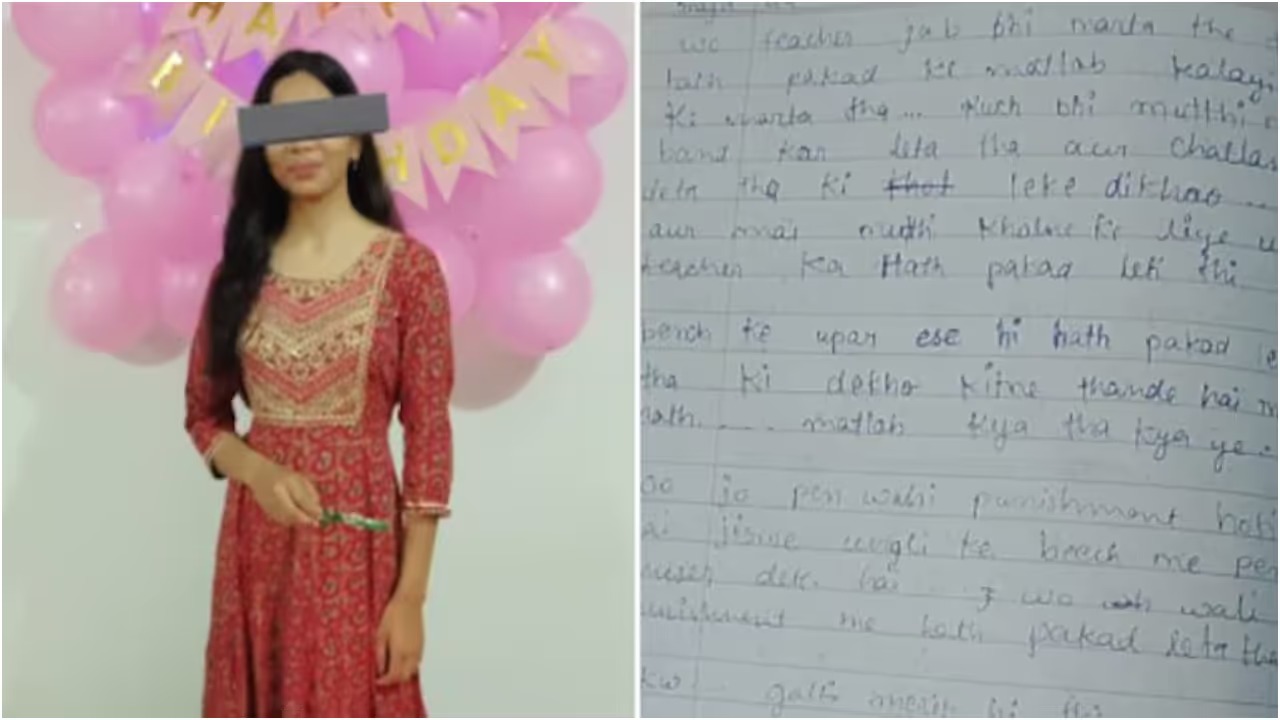 HAPPY
BI HDAY
wo teacher jab bhi marta the
hath pakad ke matlab kalayi
ki marta tha... kuch bhi mutthi
band kar leta tha aur challan
deta tha ki leke dikhao ...
aur mai muthi kholne ke liye
teacher ka Hath pakad leti thi
bench ke upar ese hi hath pakad le
tha ki dekho kitne thande hai m
hath.... matlab kya tha kya ye.
oo jo pen wahi punishment hoti
ai jisme ungli ke beech me pen
dek. hai. wo wali
unishment me hath pakad leta the
kw galti meri hi thi